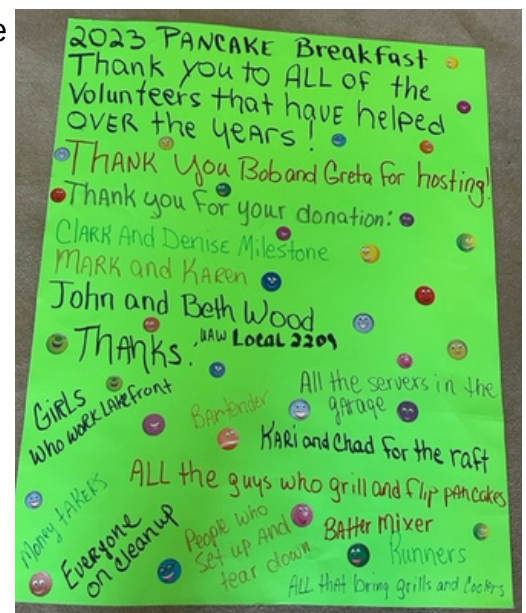 e
2023 PANCAKE Breakfast
Thank you to ALL of the
Volunteers that have helped
OVER the years!
THANK you Bob and Greta for hosting!
Thank you for your donation:
CLARK And Denise Milestone
MARK and KAREN
John and Beth Wood
UAW Local 2209
THANKS.
GIRLS
who work LAKefront
BARtender
All the servers in the
garage
KARi and Chad for the raft
ALL the guys who grill and flip pancakes
Money tAKERS
Everyone
on cleanup
People who
Set up And
tear down
BATter mixer
Runners
All that bring grills and Coolers